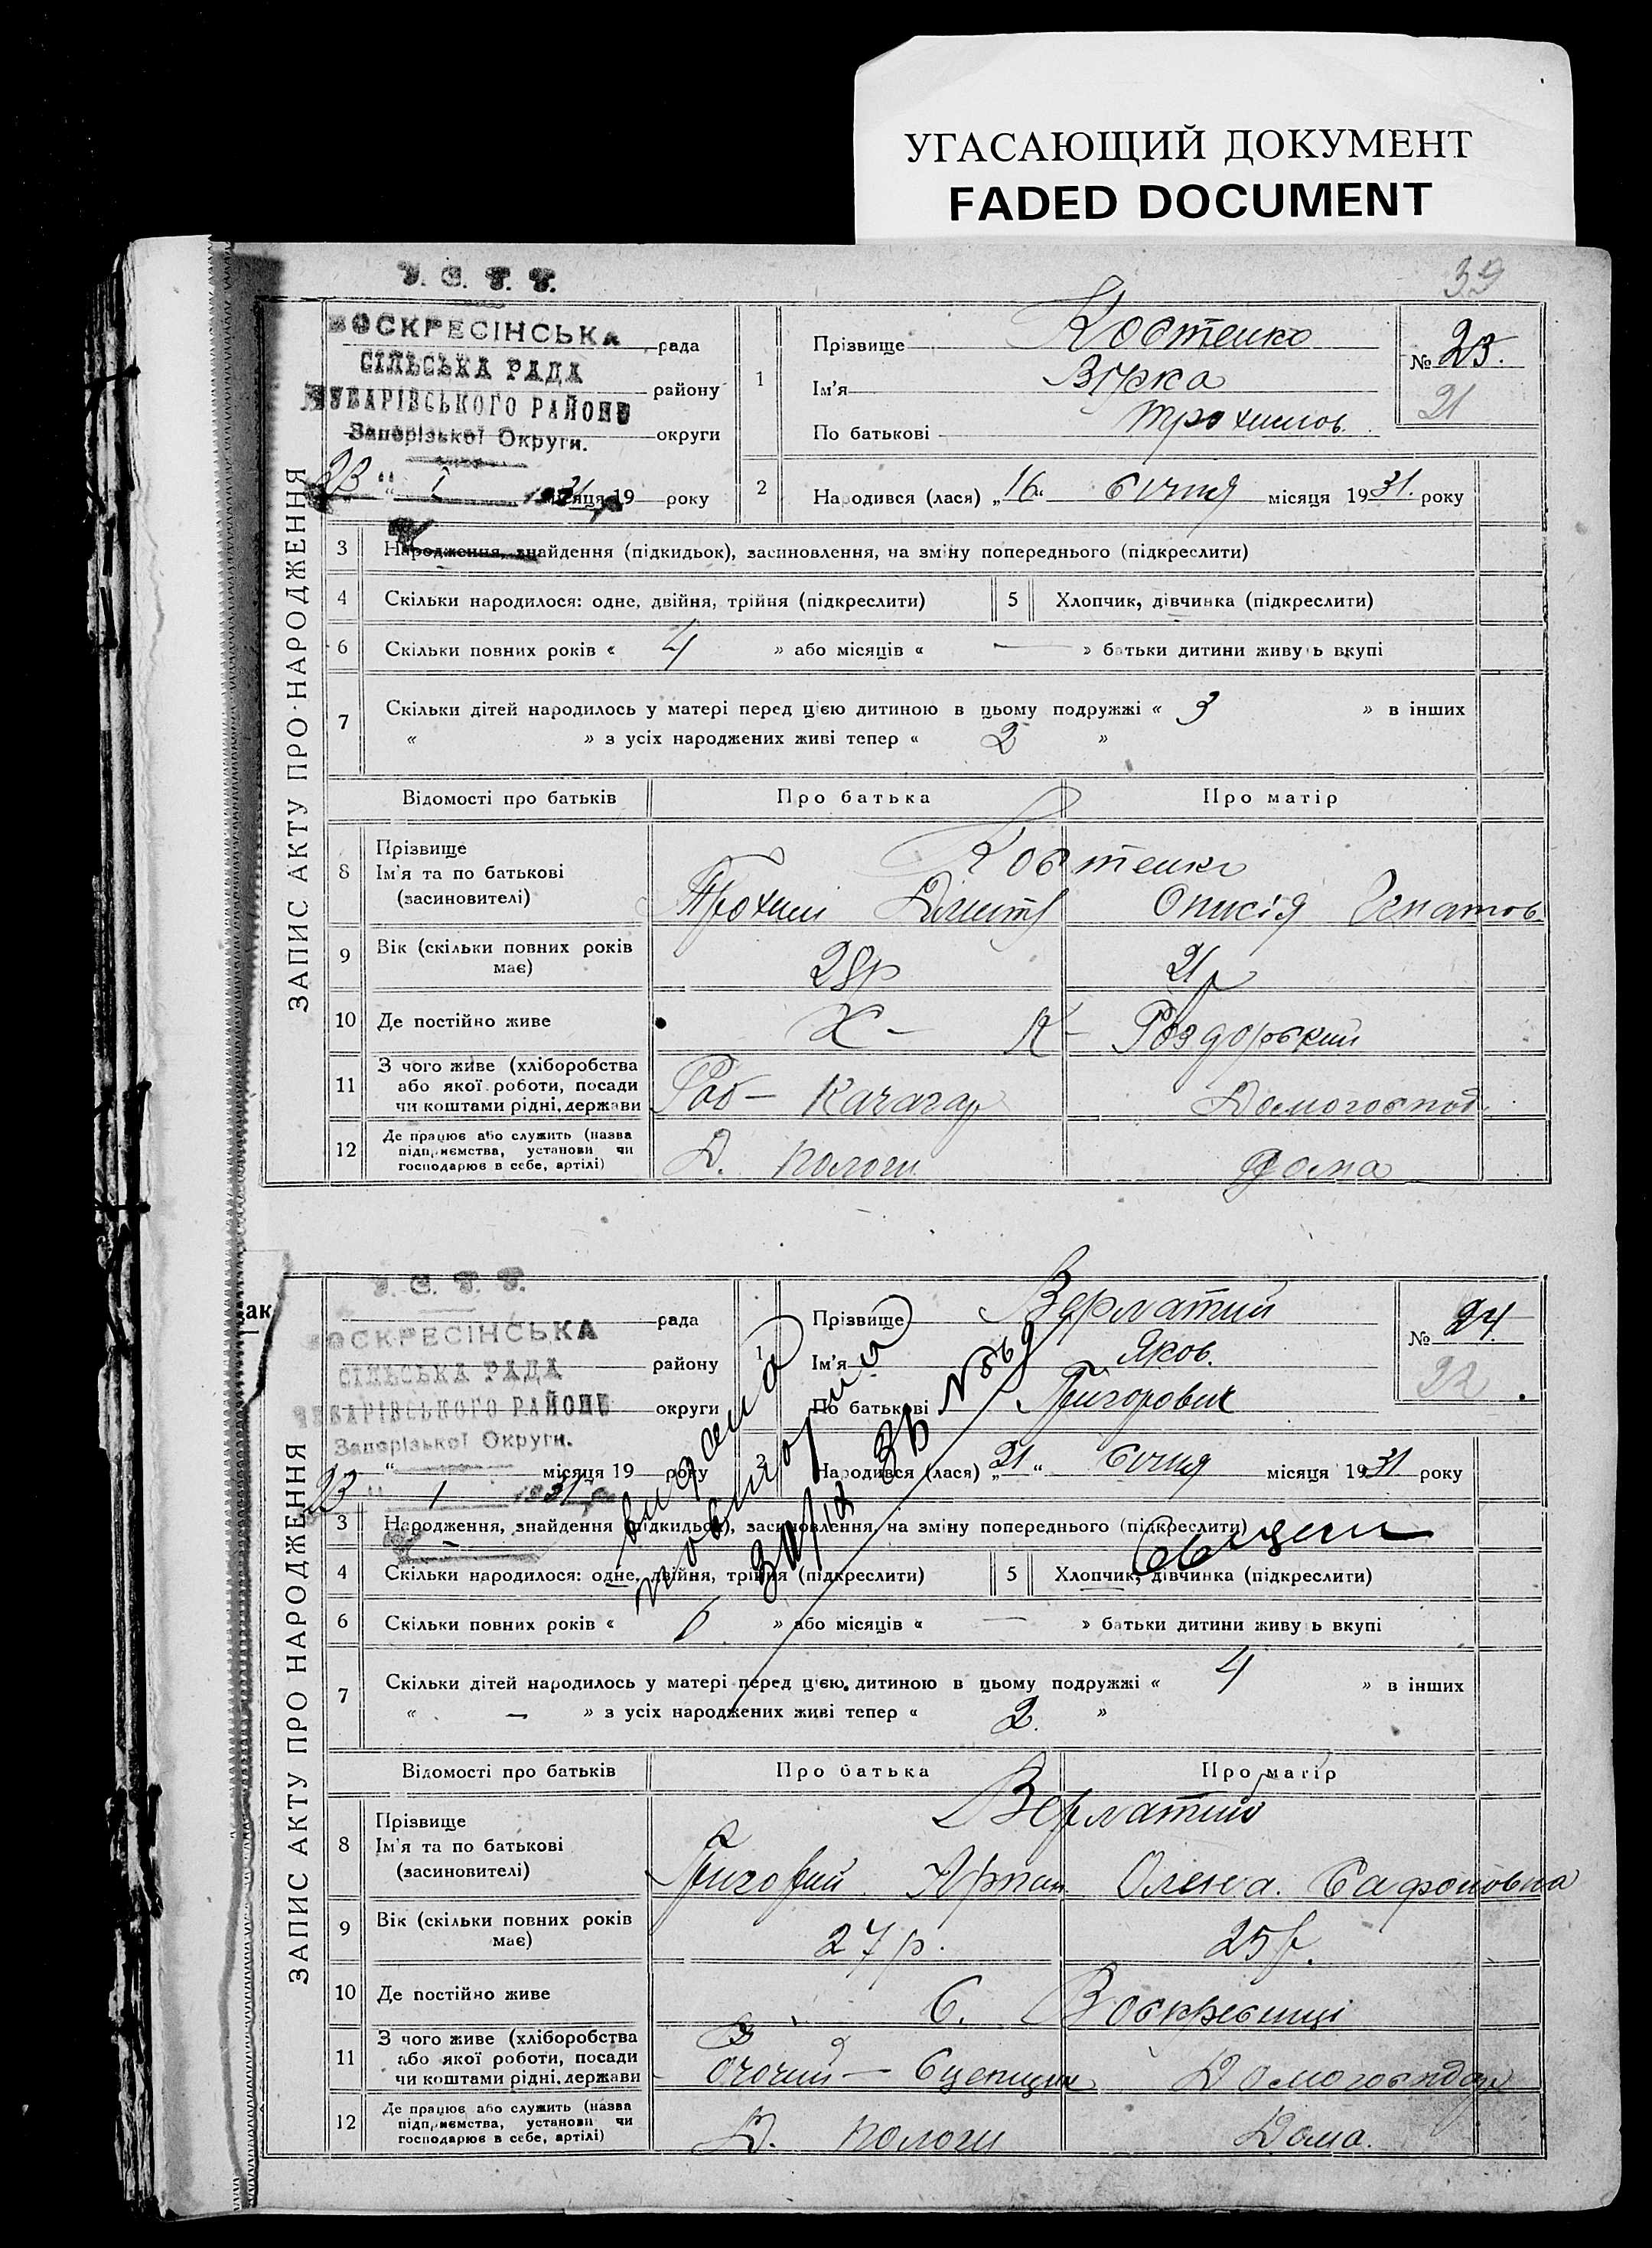 УГАСАЮЩИЙ ДОКУМЕНТ
FADED DOCUMENT
39
У. С. Р. Р.
ВОСКРЕСІНСЬКА рада
СІЛЬСЬКА РАДА району
ЧУБАРІВСЬКОГО РАЙОНУ
Запорізької Округи. округи
23 " 1 1931 місяця 19 року
ЗАПИС АКТУ ПРО НАРОДЖЕННЯ
1 Прізвище Костенко
Ім'я Вірка
По батькові Трохимов.
№ 23.
21
2 Народився (лася) „16“ січня місяця 1931. року
3 Народження, знайдення (підкидьок), засиновлення, на зміну попереднього (підкреслити)
4 Скільки народилося: одне, двійня, трійня (підкреслити) 5 Хлопчик, дівчинка (підкреслити)
6 Скільки повних років « 4 » або місяців « — » батьки дитини живуть вкупі
7 Скільки дітей народилось у матері перед цією дитиною в цьому подружжі « 3 » в інших
« » з усіх народжених живі тепер « 2 »
Відомості про батьків Про батька Про матір
8 Прізвище Ім'я та по батькові (засиновителі) Костенко
Трохим Дмит Описія Ігнатов.
9 Вік (скільки повних років має) 28р 21р
10 Де постійно живе Х — Роздорський
11 З чого живе (хліборобства або якої роботи, посади чи коштами рідні, держави Роб — Качагар Домогоспод.
12 Де працює або служить (назва підприємства, установи чи господарює в себе, артілі) Д. Пологи дома
У. С. Р. Р.
ВОСКРЕСІНСЬКА рада
СІЛЬСЬКА РАДА району
ЧУБАРІВСЬКОГО РАЙОНУ округи
Запорізької Округи.
„ “ місяця 19 року
23 " 1 1931 р.
ЗАПИС АКТУ ПРО НАРОДЖЕННЯ
1 Прізвище Верлатий
Ім'я Яков.
По батькові Григорович
№ 24.
22
2 Народився (лася) „21“ січня місяця 1931 року
видана
повторна
ЗВ №
3 Народження, знайдення (підкидьок), засиновлення, на зміну попереднього (підкреслити)
4 Скільки народилося: одне, двійня, трійня (підкреслити) 5 Хлопчик, дівчинка (підкреслити)
6 Скільки повних років « » або місяців « — » батьки дитини живуть вкупі
7 Скільки дітей народилось у матері перед цією дитиною в цьому подружжі « 4 » в інших
« — » з усіх народжених живі тепер « 2. »
Відомості про батьків Про батька Про матір
8 Прізвище Ім'я та по батькові (засиновителі) Верлатий
Григорий Олена. Сафоновна
9 Вік (скільки повних років має) 27р. 25р.
10 Де постійно живе С. Воскресинці
11 З чого живе (хліборобства або якої роботи, посади чи коштами рідні, держави — Сцепщик Домогосподар
12 Де працює або служить (назва підприємства, установи чи господарює в себе, артілі) Д. Пологи Дома.